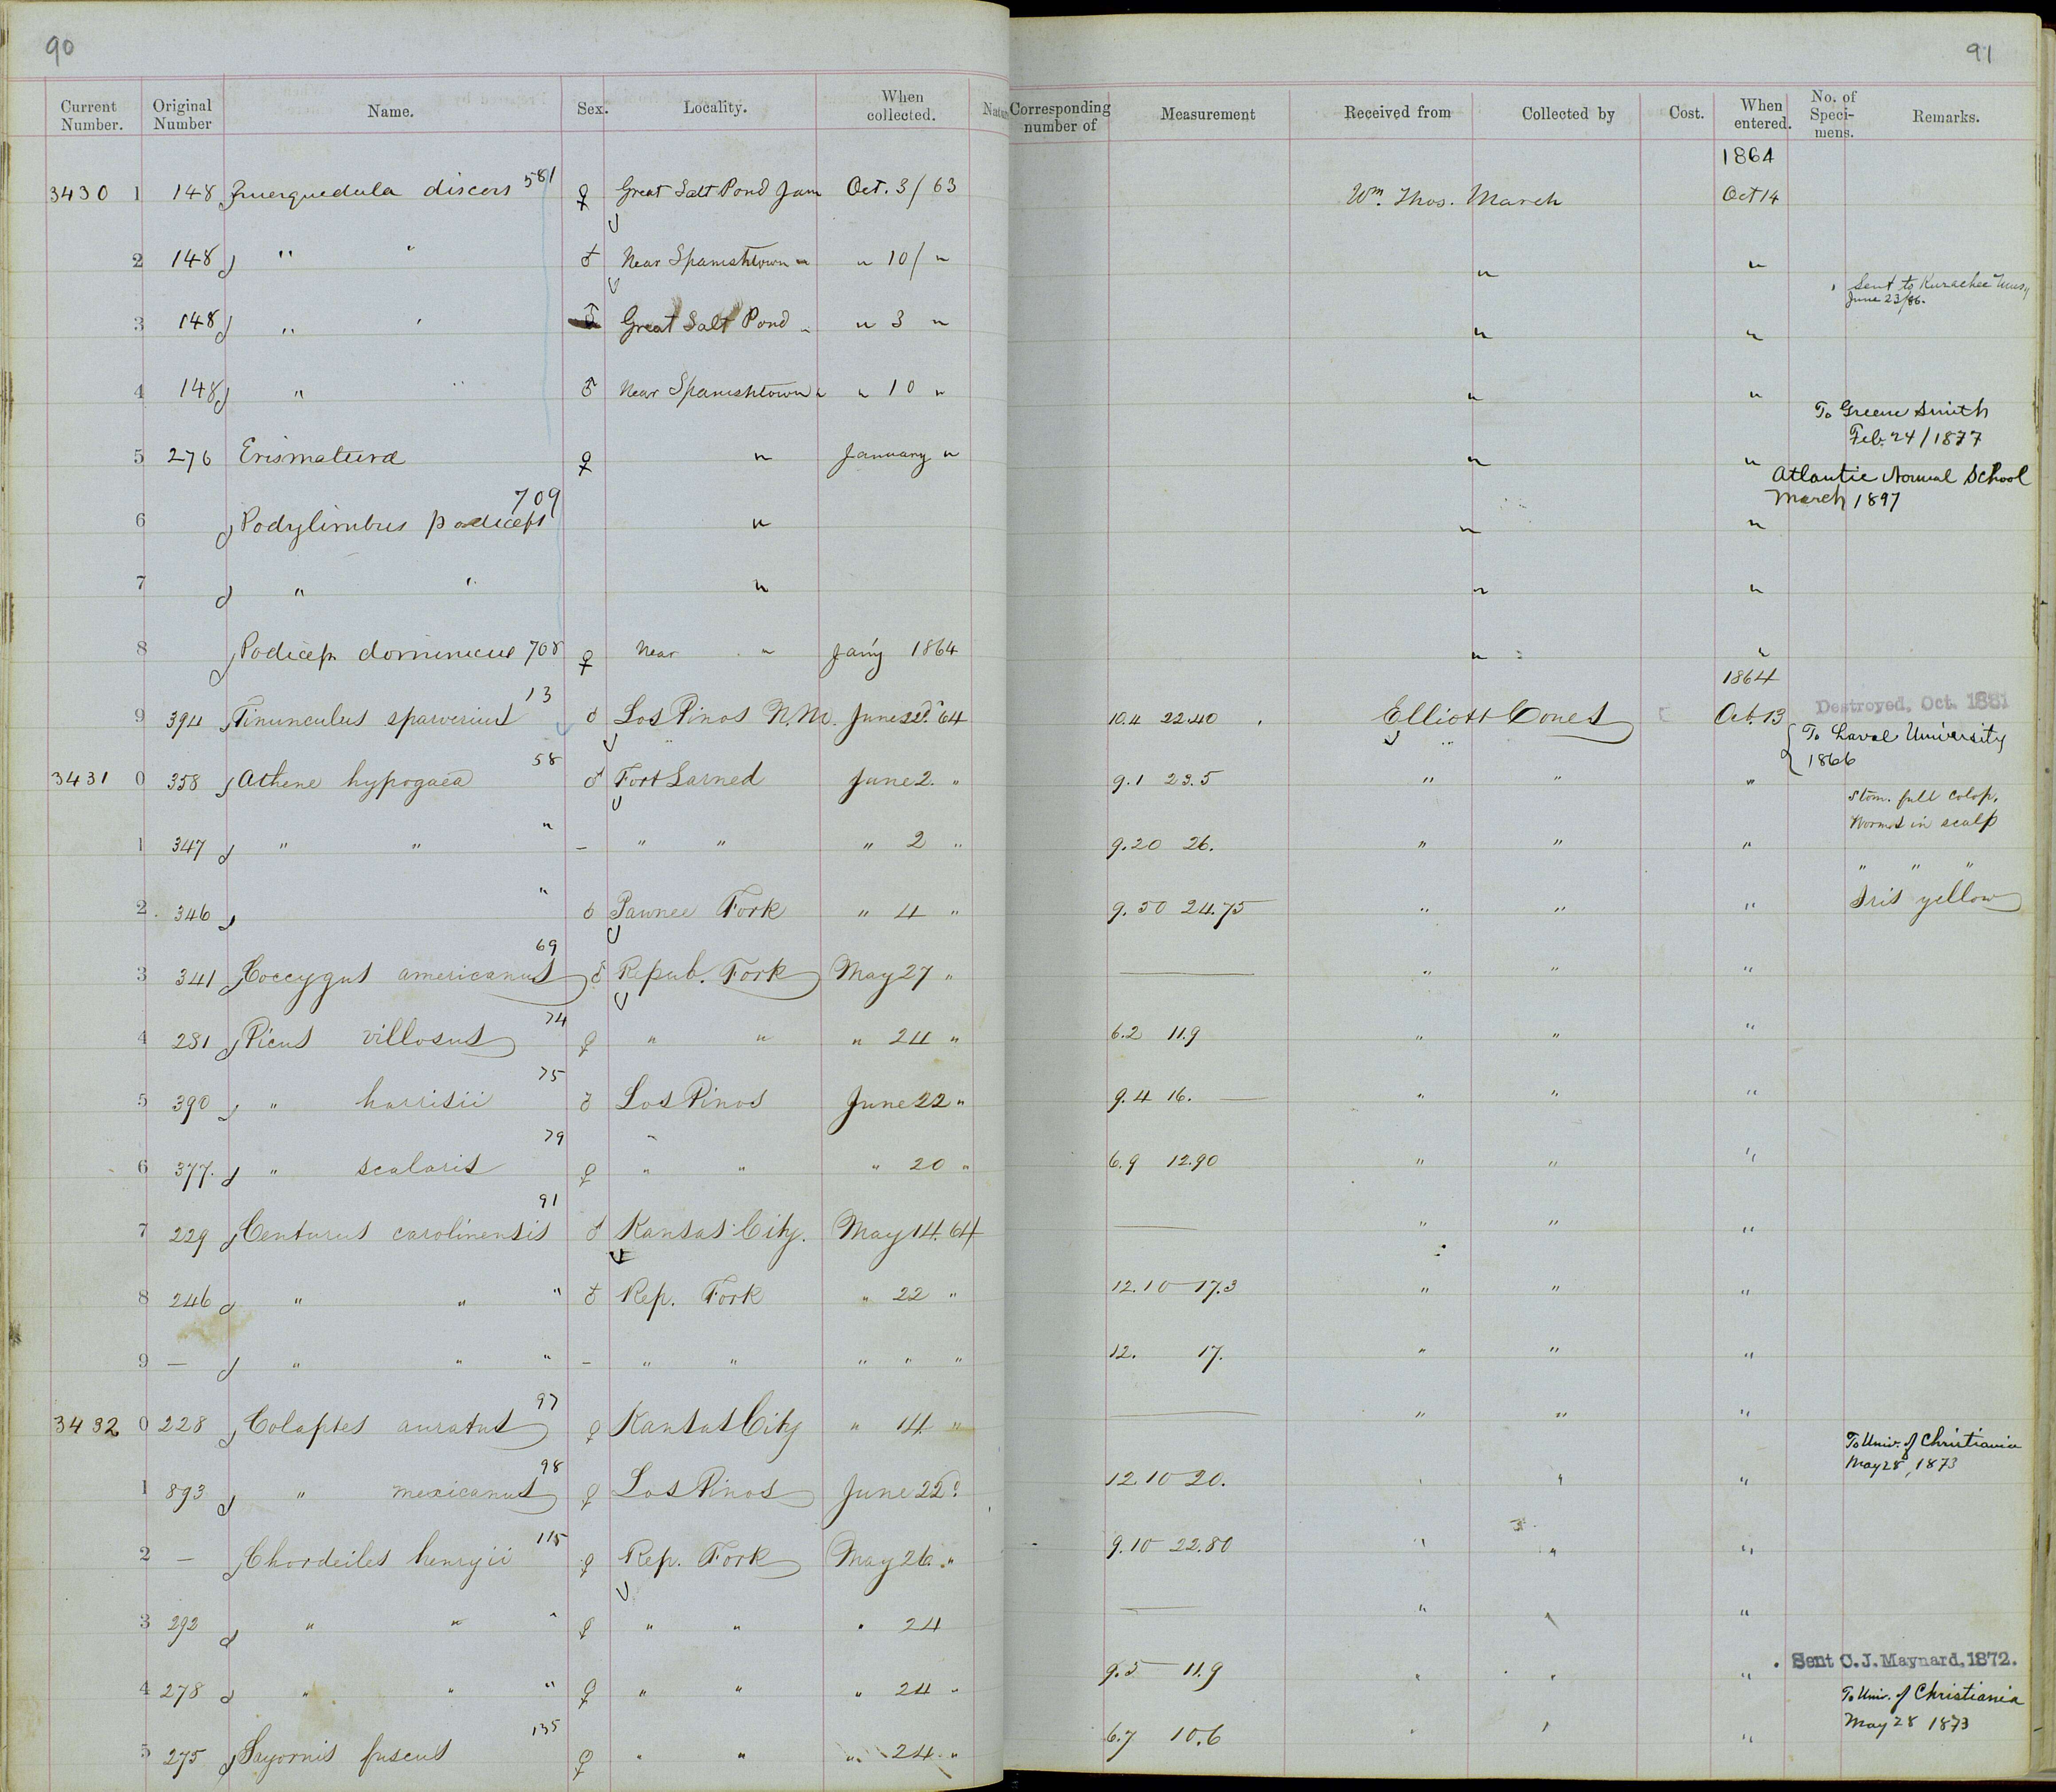 90
Current Number. Original Number Name. Sex. Locality. When collected.
3430 1 148 Querquedula discors 581 ♀ Great Salt Pond Jam Oct. 3/63
2 148 " " ♂ Near Spanishtown " " 10/ "
3 148 " " ♂ Great Salt Pond " " 3 "
4 148 " " ♂ Near Spanishtown " " 10 "
5 276 Erismatura ♀ " January "
709
6 Podylimbus podiceps "
7 " " "
8 Podiceps dominicus 708 ♀ Near " Jan'y 1864
13
9 394 Tinunculus sparverius ♂ Los Pinos N.M. June 22d. 64
58
3431 0 358 Athene hypogaea ♂ Fort Larned June 2. "
1 347 " " " – " " " 2 "
2 346 " ♂ Pawnee Fork " 4 "
69
3 341 Coccygus americanus ♂ Repub. Fork May 27 "
74
4 281 Picus villosus ♀ " " " 24 "
75
5 390 " harrisii ♂ Los Pinos June 22 "
79
6 377. " scalaris ♀ " " " 20 "
91
7 229 Centurus carolinensis ♂ Kansas City. May 14. 64
8 246 " " " ♂ Rep. Fork " 22 "
9 — " " " – " " " " "
97
3432 0 228 Colaptes auratus ♀ Kansas City " 14 "
98
1 893 " mexicanus ♀ Los Pinos June 22
115
2 — Chordeiles henryii ♀ Rep. Fork May 26 "
3 292 " " " ♀ " " " 24
4 278 " " " ♀ " " " 24 "
135
5 275 Sayornis fuscus ♀ " " " 24 "
91
Corresponding number of Measurement Received from Collected by Cost. When entered. No. of Specimens. Remarks.
1864
Wm. Thos. March Oct 14
" "
Sent to Kurachee Mus
June 23/86.
" "
" "
To Greene Smith
Feb. 24/1877
" "
Atlantic Normal School
March 1897
" "
" "
" "
1864
Destroyed, Oct. 1881
10.4 22.40 Elliott Coues Oct. 13
To Laval University
1866
9.1 23.5 " " "
Stom. full colop.
Worms in scalp
9.20 26. " " "
" " "
9.50 24.75 " " " Iris yellow
— " " "
6.2 11.9 " " "
9.4 16. — " " "
6.9 12.90 " " "
— " " "
12.10 17.3 " " "
12. 17. " " "
— " " "
To Univ. of Christiania
May 28, 1873
12 10 20. " " "
9.10 22.80 " " "
— " " "
Sent C. J. Maynard, 1872.
9.5 11.9 " " "
To Univ. of Christiania
May 28 1873
6.7 10.6 " " "